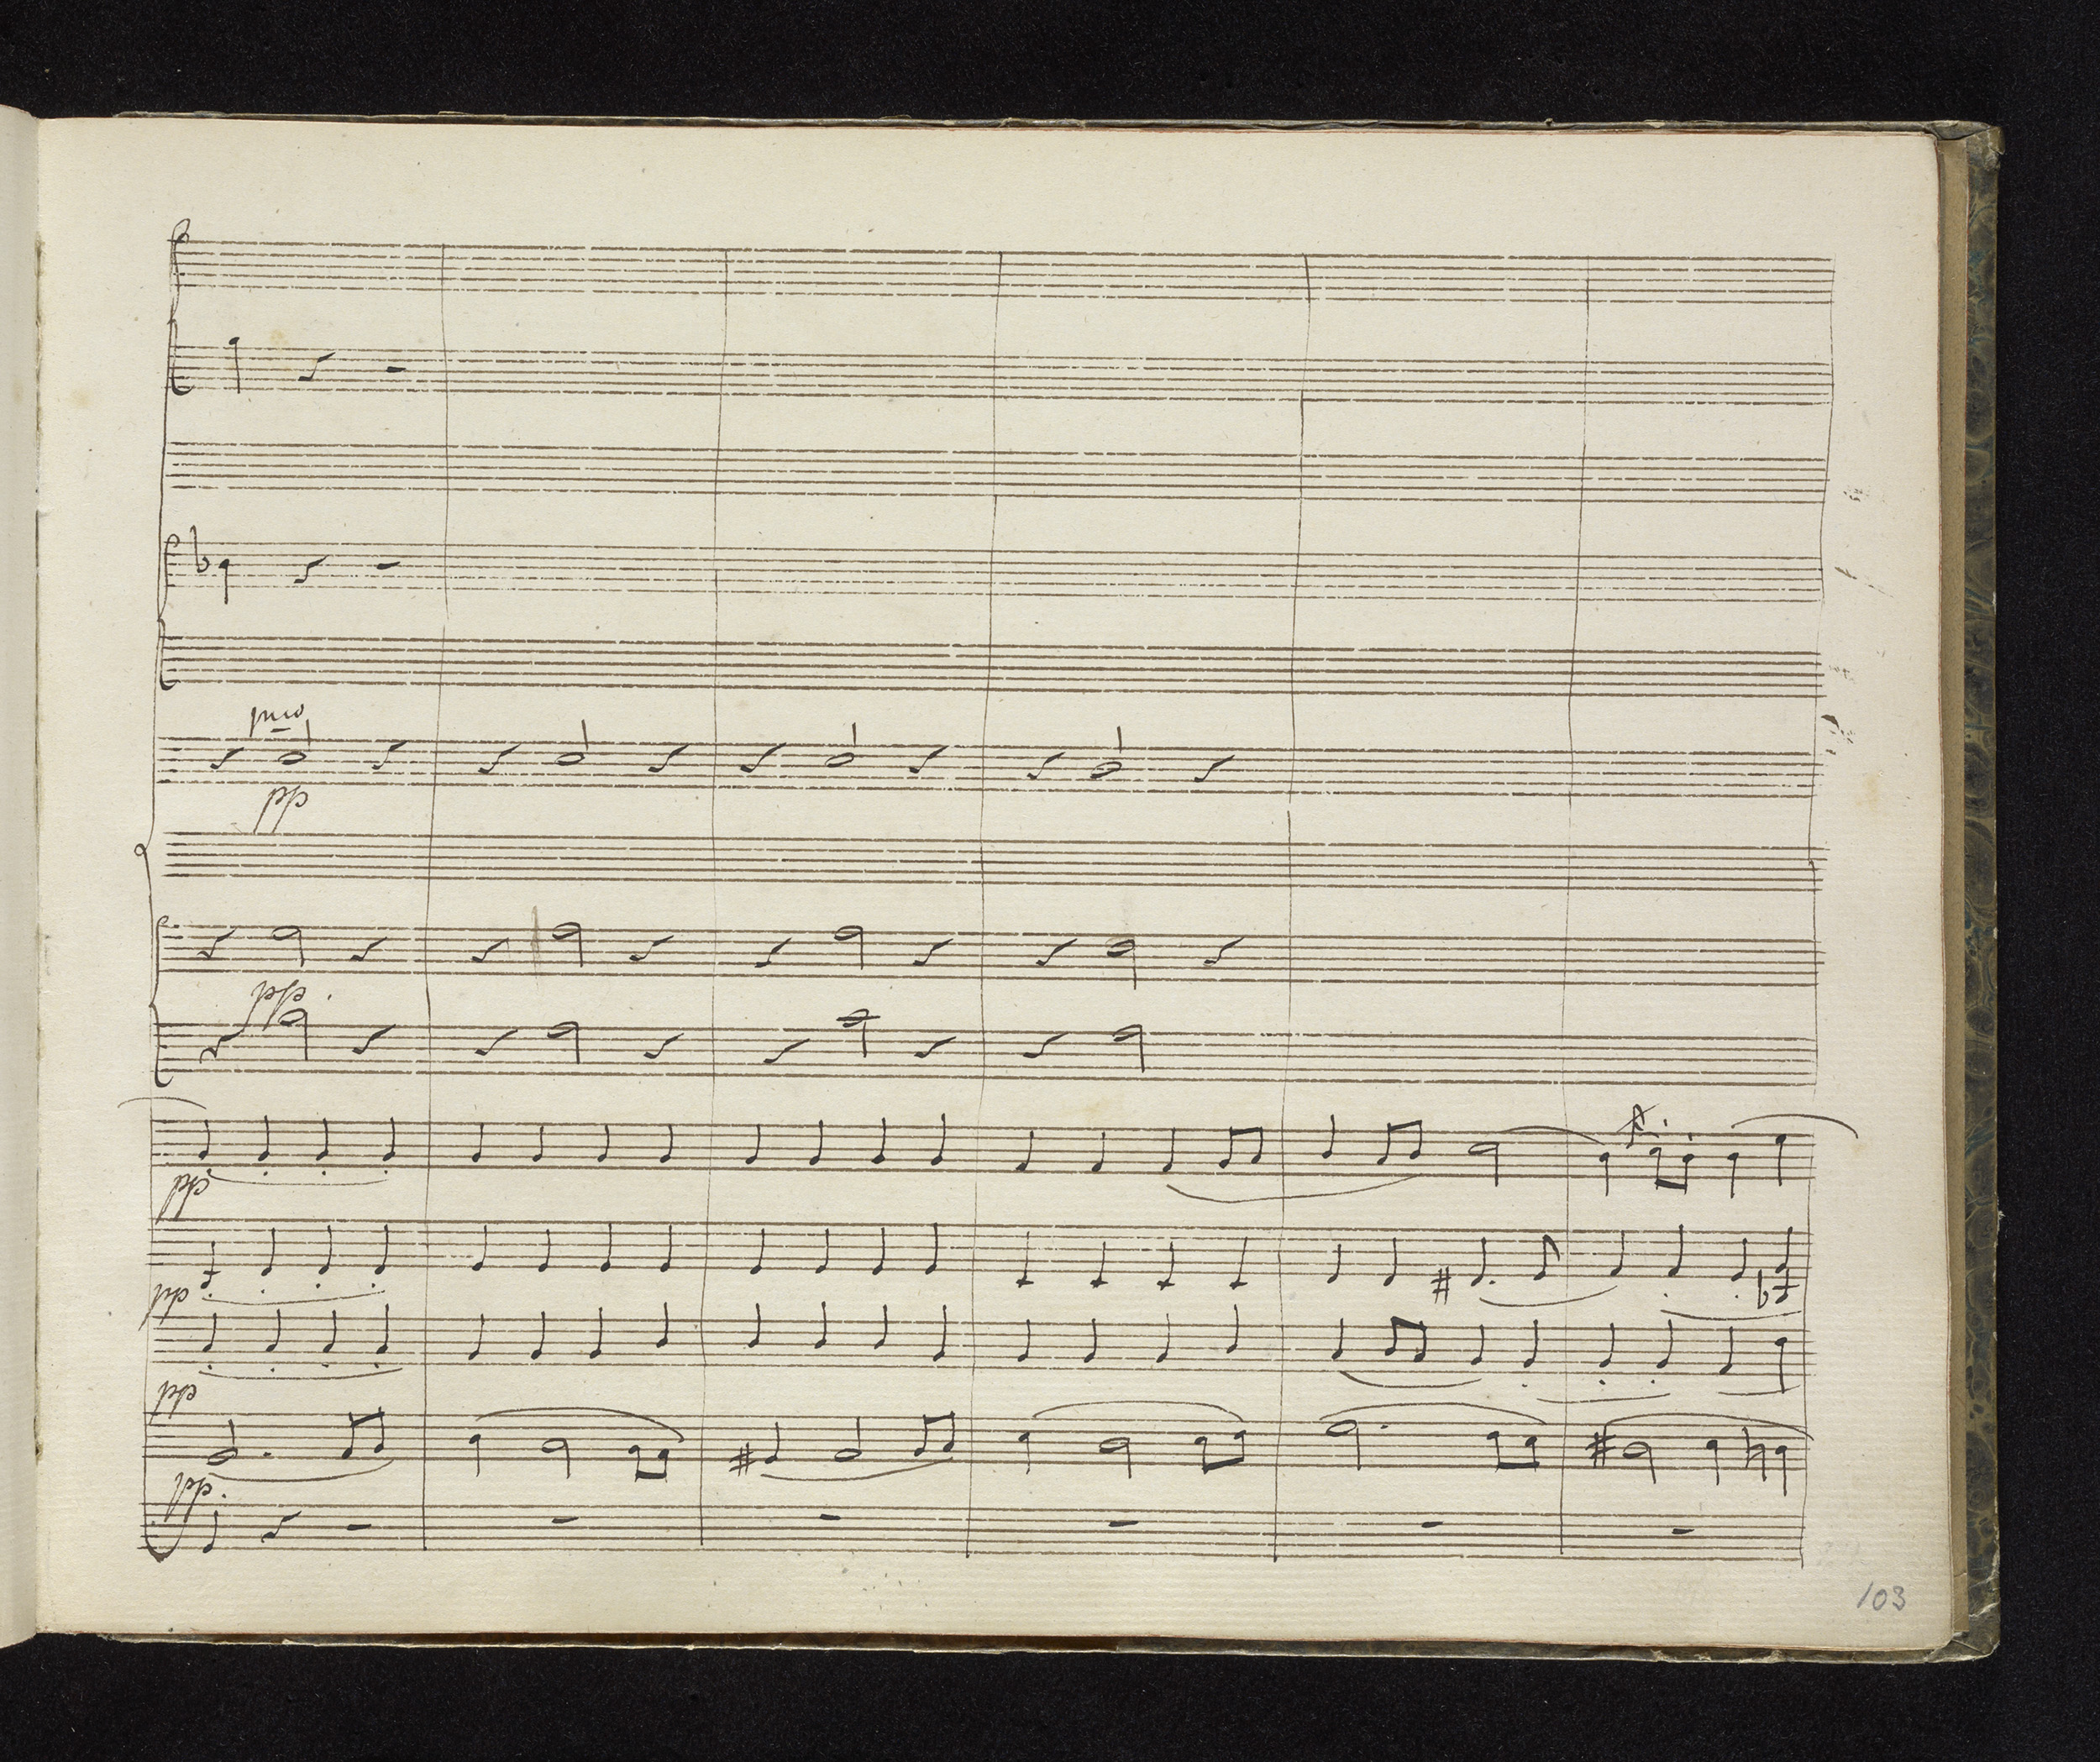 pmo
pp
pp.
pp
pp
pp
pp.
103